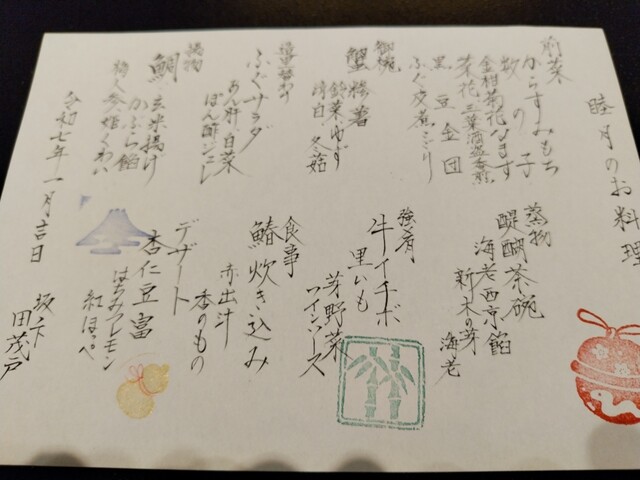 睦月のお料理
前菜
からすみもち
数の子
金柑菊花なます
菜花 三葉酒盗香煎
黒豆金団
ふぐ皮煮こごり
御椀
蟹糁薯
鈴菜 ゆず
清白 冬菇
造里替わり
ふぐサラダ
あん肝 白菜
ぽん酢ジュレ
揚物
鯛 玄米揚げ
かぶら餡
梅人参 姫くわい
蒸物
醍醐茶碗
海老西京餡
新木の芽 海老
強肴
牛イチボ
里いも
芽野菜
ワインソース
食事
鰆炊き込み
赤出汁
香のもの
デザート
杏仁豆富
はちみつレモン
紅ほっぺ
令和七年一月吉日
坂下
田茂戸